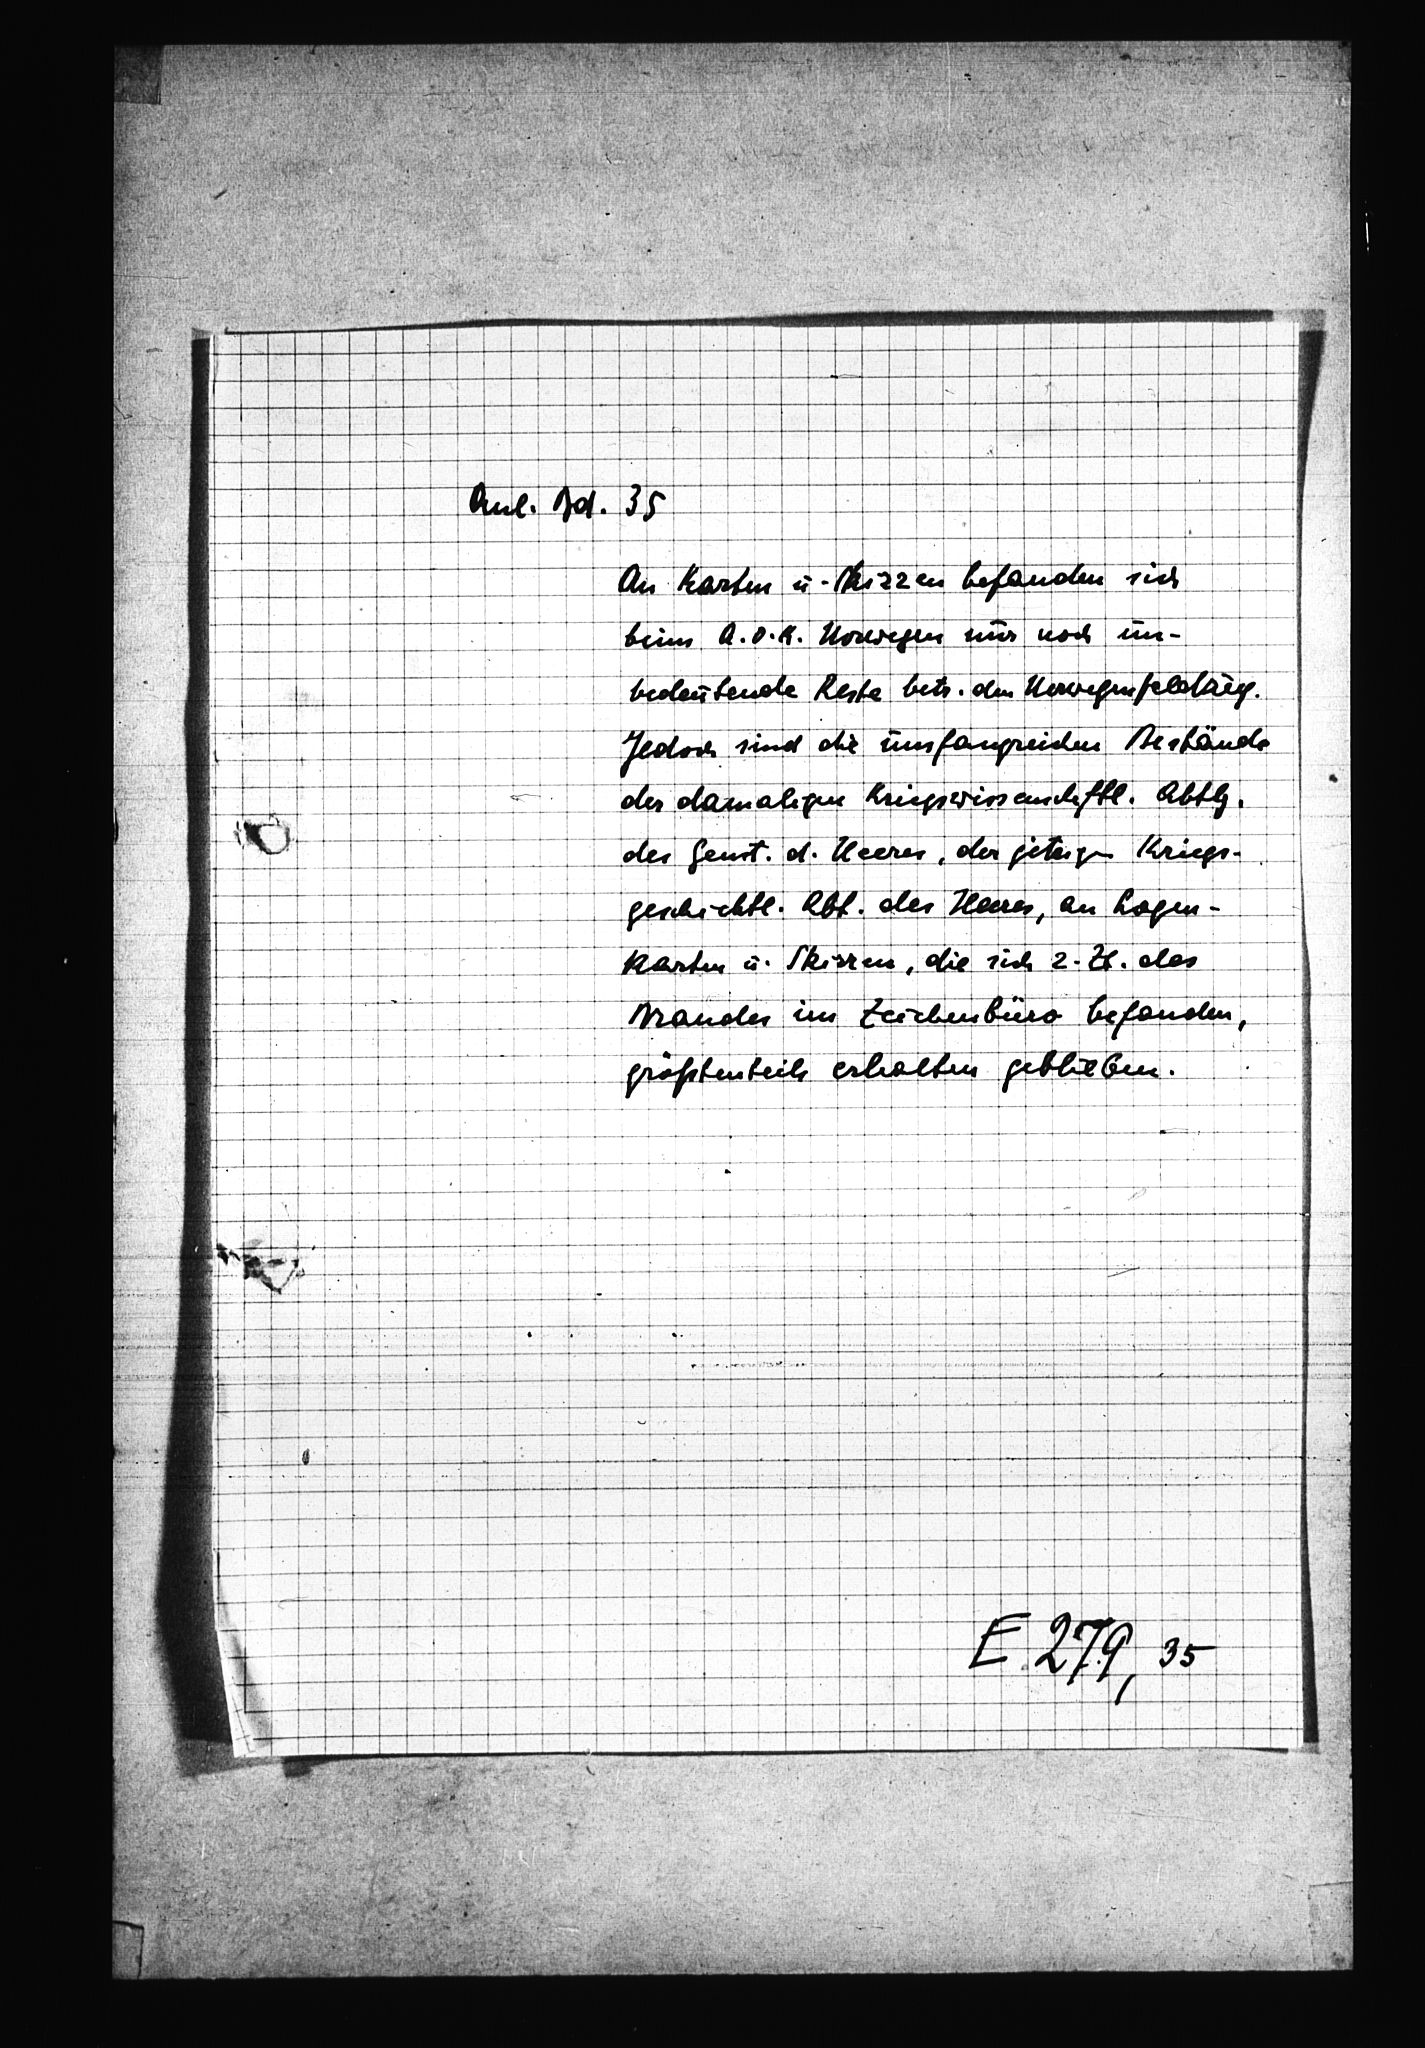 Anl. Bd. 35
An Karten u. Skizzen befanden sich
beim A.O.K. Norwegen nur noch un-
bedeutende Reste betr. den Norwegenfeldzug.
Jedoch sind die umfangreichen Bestände
der damaligen Kriegswissenschaftl. Abtlg.
des Genst. d. Heeres, der jetzigen Kriegs-
geschichtl. Abt. des Heeres, an Lagen-
karten u. Skizzen, die sich z. Zt. des
Brandes im Zeichenbüro befanden,
größtenteils erhalten geblieben.
E 279, 35